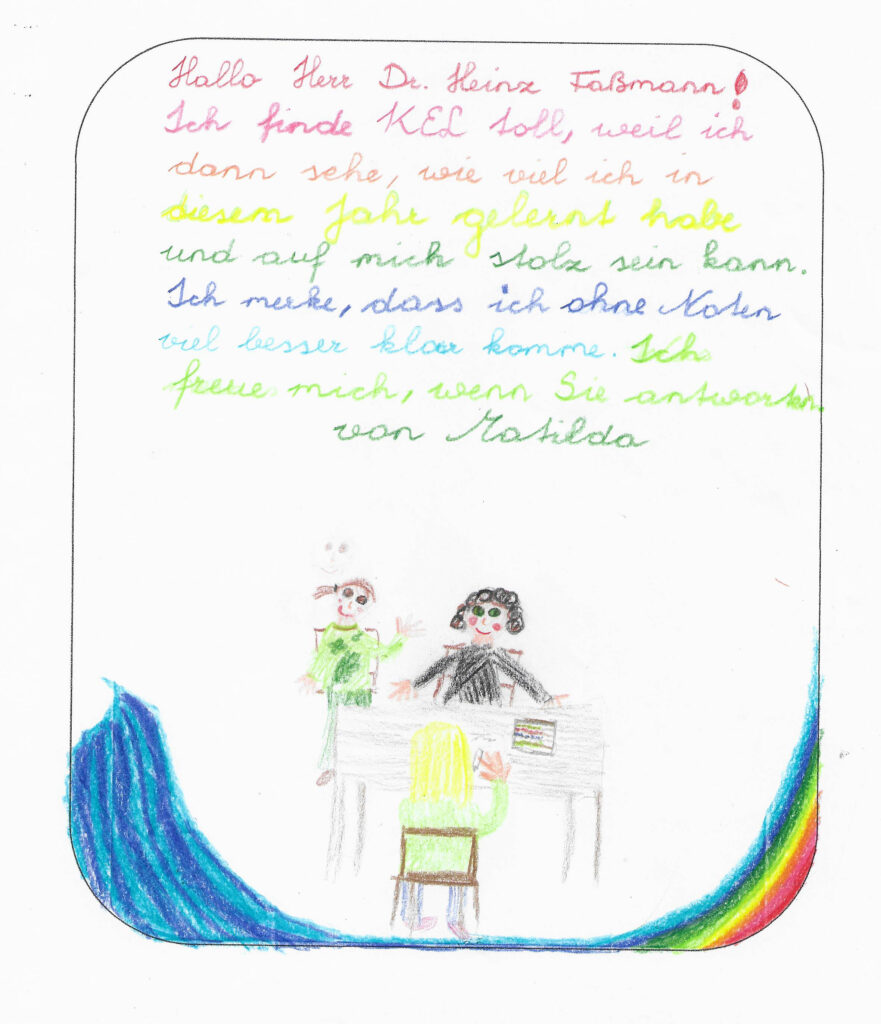 Hallo Herr Dr. Heinz Faßmann!
Ich finde KEL toll, weil ich
dann sehe, wie viel ich in
diesem Jahr gelernt habe
und auf mich stolz sein kann.
Ich merke, dass ich ohne Noten
viel besser klar komme. Ich
freue mich, wenn Sie antworten.
von Matilda